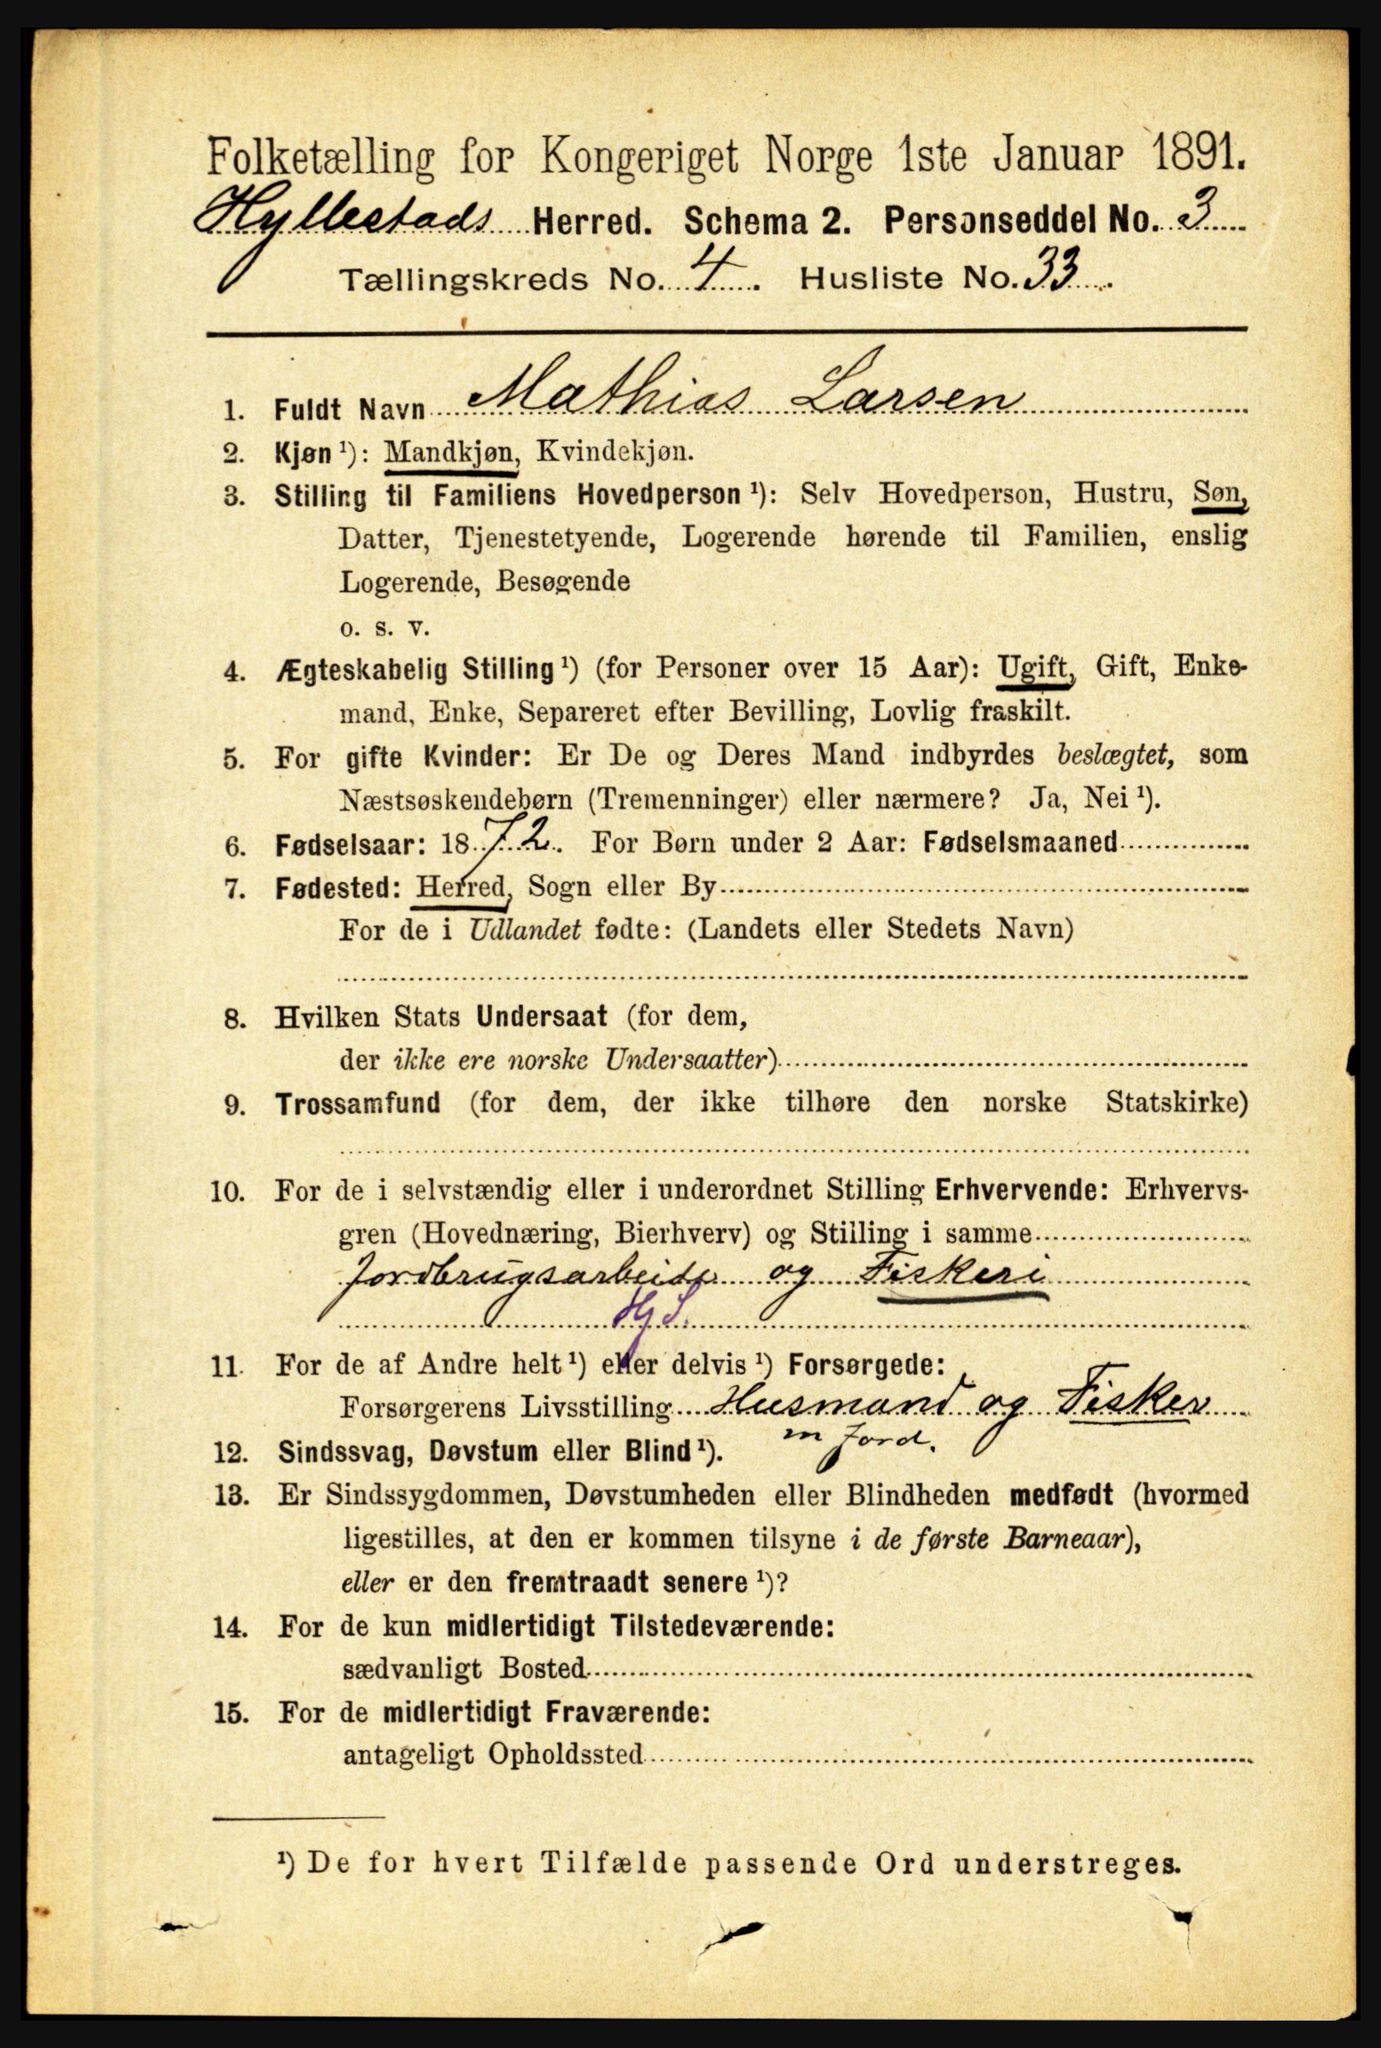 Folketælling for Kongeriget Norge 1ste Januar 1891.
Hyllestads Herred. Schema 2. Personseddel No. 3
Tællingskreds No. 4. Husliste No. 33.
1. Fuldt Navn Mathias Larsen
2. Kjøn ¹): Mandkjøn, Kvindekjøn.
3. Stilling til Familiens Hovedperson ¹): Selv Hovedperson, Hustru, Søn,
Datter, Tjenestetyende, Logerende hørende til Familien, enslig
Logerende, Besøgende
o. s. v.
4. Ægteskabelig Stilling ¹) (for Personer over 15 Aar): Ugift, Gift, Enke-
mand, Enke, Separeret efter Bevilling, Lovlig fraskilt.
5. For gifte Kvinder: Er De og Deres Mand indbyrdes beslægtet, som
Næstsøskendebørn (Tremenninger) eller nærmere? Ja, Nei ¹).
6. Fødselsaar: 1872. For Børn under 2 Aar: Fødselsmaaned
7. Fødested: Herred, Sogn eller By
For de i Udlandet fødte: (Landets eller Stedets Navn)
8. Hvilken Stats Undersaat (for dem,
der ikke ere norske Undersaatter)
9. Trossamfund (for dem, der ikke tilhøre den norske Statskirke)
10. For de i selvstændig eller i underordnet Stilling Erhvervende: Erhvervs-
gren (Hovednæring, Bierhverv) og Stilling i samme
Jordbrugsarbeide og Fiskeri
Hj S.
11. For de af Andre helt ¹) eller delvis ¹) Forsørgede:
Forsørgerens Livsstilling Husmand og Fisker
m Jord.
12. Sindssvag, Døvstum eller Blind ¹).
13. Er Sindssygdommen, Døvstumheden eller Blindheden medfødt (hvormed
ligestilles, at den er kommen tilsyne i de første Barneaar),
eller er den fremtraadt senere ¹)?
14. For de kun midlertidigt Tilstedeværende:
sædvanligt Bosted
15. For de midlertidigt Fraværende:
antageligt Opholdssted
¹) De for hvert Tilfælde passende Ord understreges.